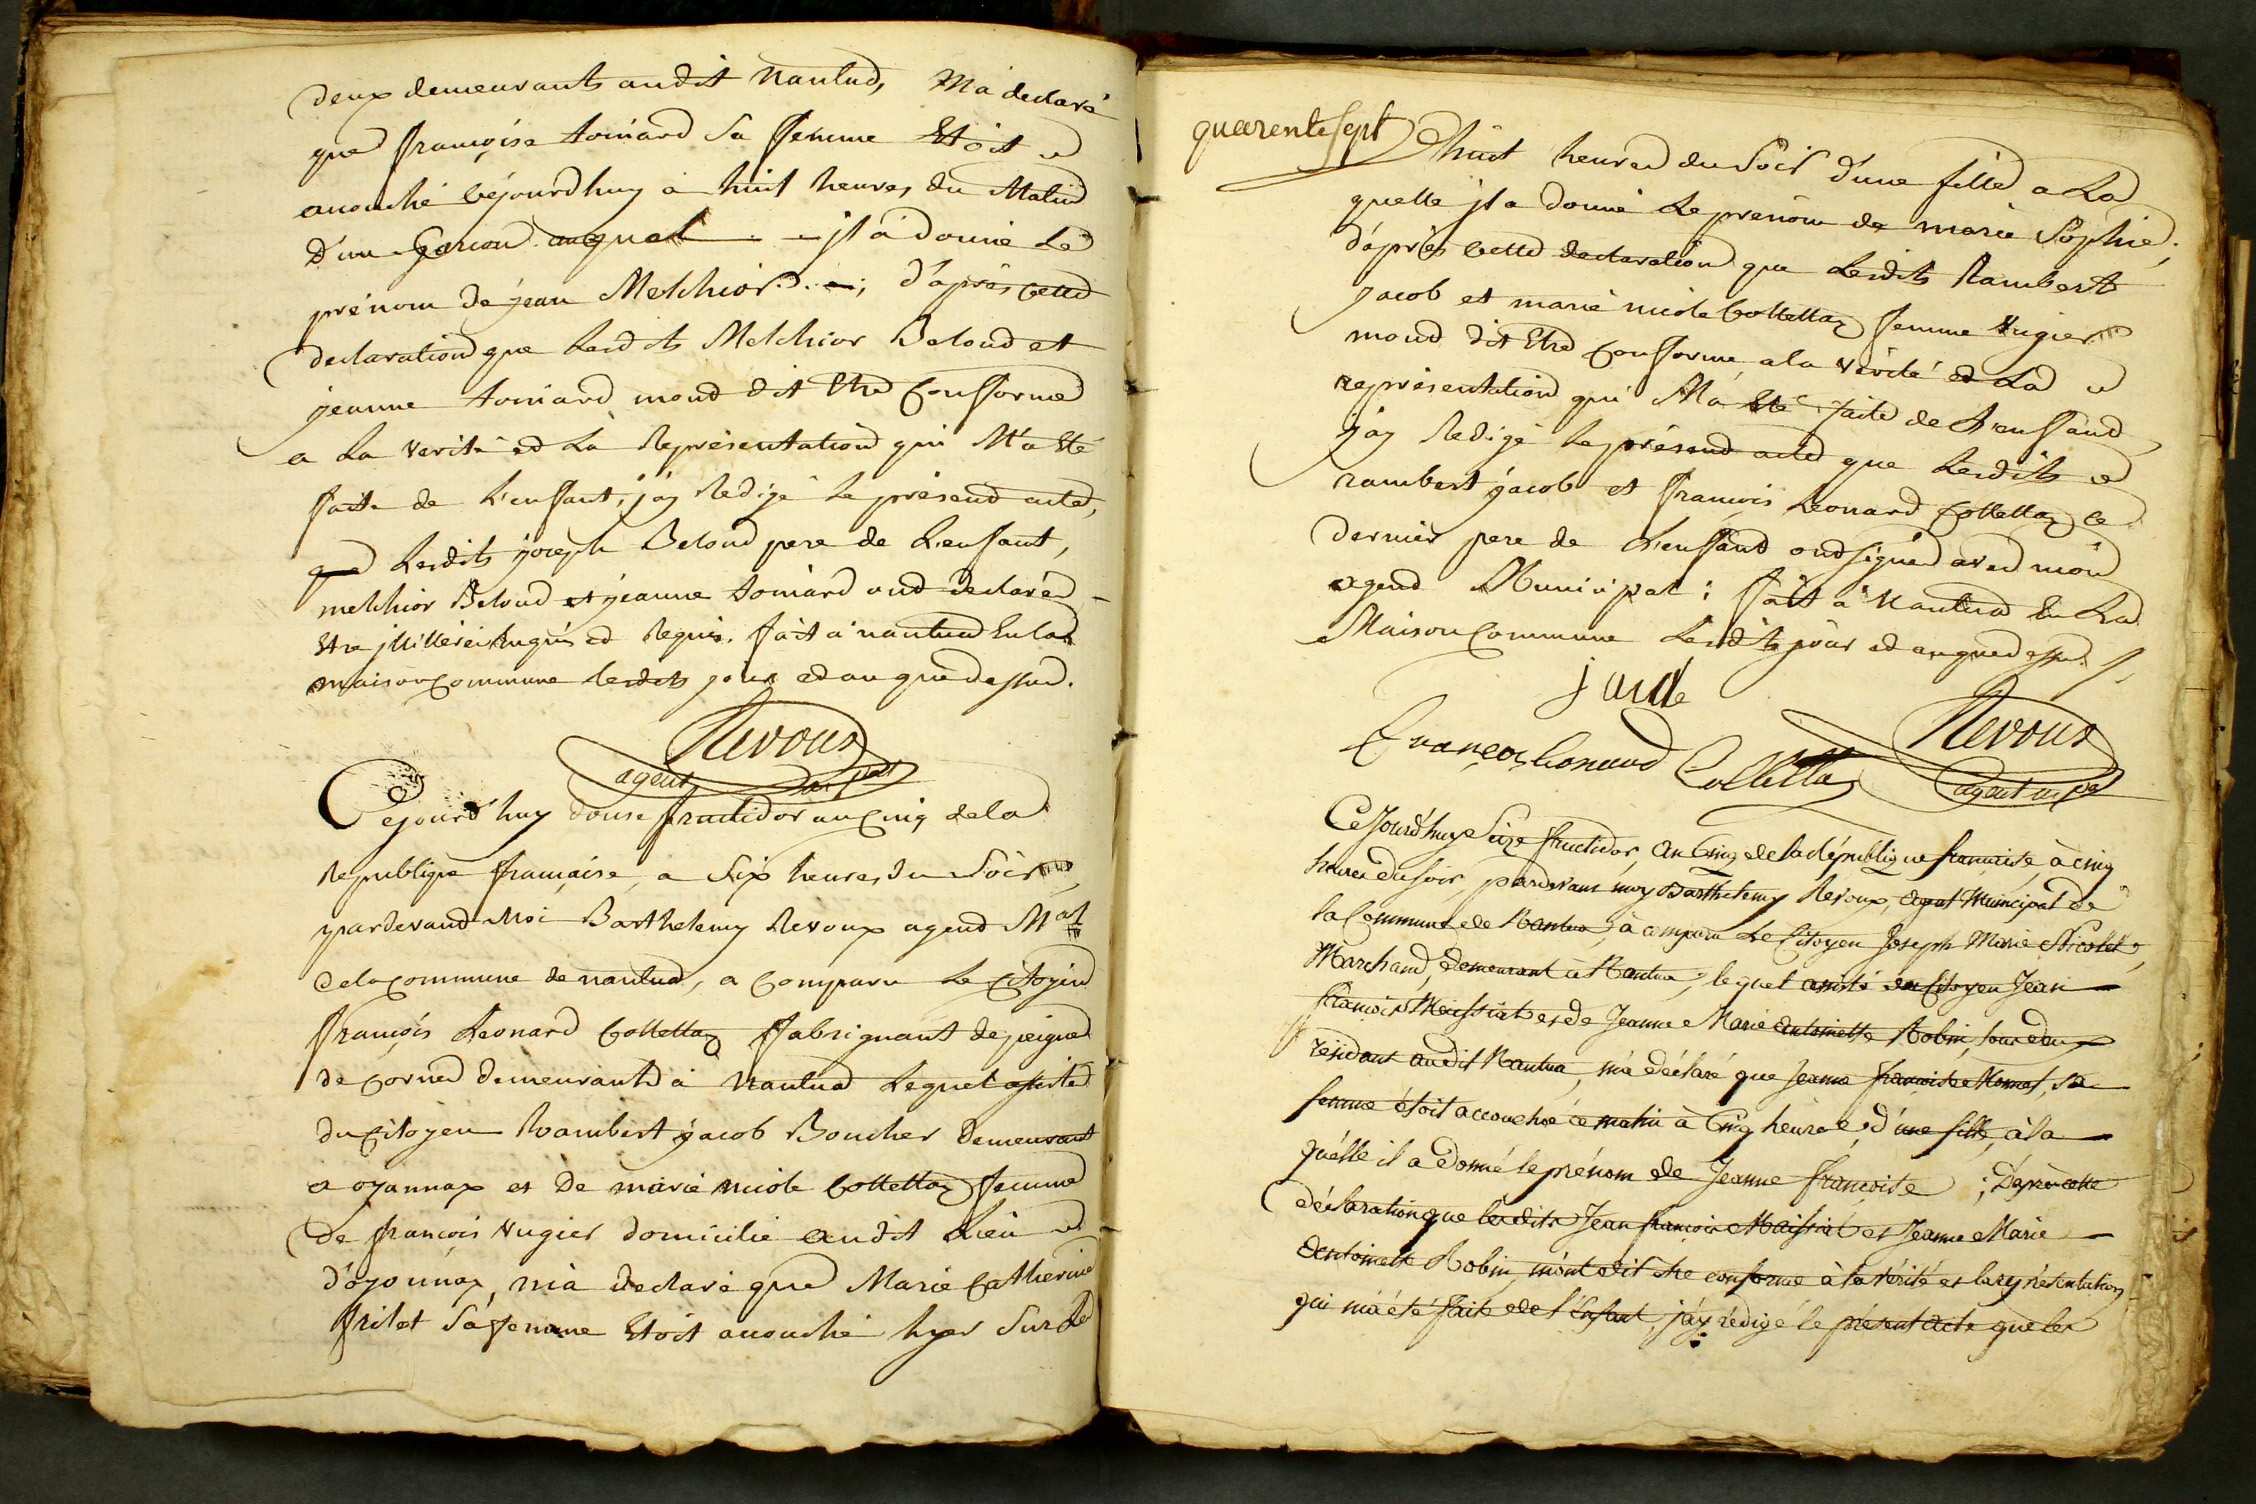 deux demeurants audit nantua, M'a declaré
que françoise toinard sa femme Etoit
accouché cejourdhuy a huit heures du Matin
d'un Garcon auquel jl a donné le
prénom de jean Melchior ; d'aprés cette
declaration que lesdits Melchior Beloud et
jeanne toinard mont dit Etre Conforme
a la verité et la Représentation qui M'a Eté
faite de L'enfant, j'ay Redigé le présent acte,
que Lesdits joseph Beloud pere de L'enfant,
melchior Beloud et jeanne toinard ont declaré
Etre jllitéré Enquis et Requis. fait a nantua En la
maison Commune lesdits jour et an que dessus.
Revoux
agent
Cejourd'huy douse fructidor an Cinq de la
Republique française, a Six heures du Soir
pardevant Moi Barthelemy Revoux agent Mal
de la Commune de nantua, a Comparu Le Citoyen
françois Leonard Collettaz fabriquant de peigne
de Corne demeurant à nantua Lequel assisté
du Citoyen Rambert jacob Boucher demeurant
a oyannax et De marie nicole Collettaz femme
De françois Vugier domicilié audit Lieu
d'oyonnax, m'a declaré que Marie Catherine
frilet Sa femme Etoit accouché hyer Sur les
quarente sept
huit heures du Soir d'une fille a La
quelle jl a donné Le prenom de marie Sophie,
d'aprés cette declaration que Lesdits Rambert
jacob et marie nicole Collettaz femme Vugier
mont dit Etre Conforme a la vérité et La
representation qui M'a Eté faite de L'enfant
j'ay Redigé Le présent acte que Lesdits
rambert jacob et françois Leonard Collettaz ce
dernier pere de L'enfant ont signé avec moi
agent Municipal ; fait a Nantua En La
Maison Commune Lesdits jour et an que dessus
françois Leonard Collettaz
Revoux
agent mpal
Cejourd'huy Seize fructidor, an Cinq de la République françoise, à cinq
heures du soir, pardevant moy Barthelemy Revoux, agent Municipal de
la Commune de Nantua, à comparu Le Citoyen Joseph Marie Nicolet,
Marchand, demeurant à Nantua, lequel assisté du Citoyen Jean
françois Maissiat et de Jeanne Marie Antoinette Robin, tous deux
résidant audit Nantua, m'à déclaré que Jeanne françoise Momet, sa
femme étoit accouchée ce matin à Cinq heures, d'une fille, à la
quélle il a donné le prénom de Jeanne françoise ; D'aprés cette
déclaration que lesdits Jean françois Maissiat et Jeanne Marie
Antoinette Robin, m'ont dit être conforme à la vérité et la représentation
qui m'à été faite de l'Enfant, j'ay rédigé le présent Acte que les